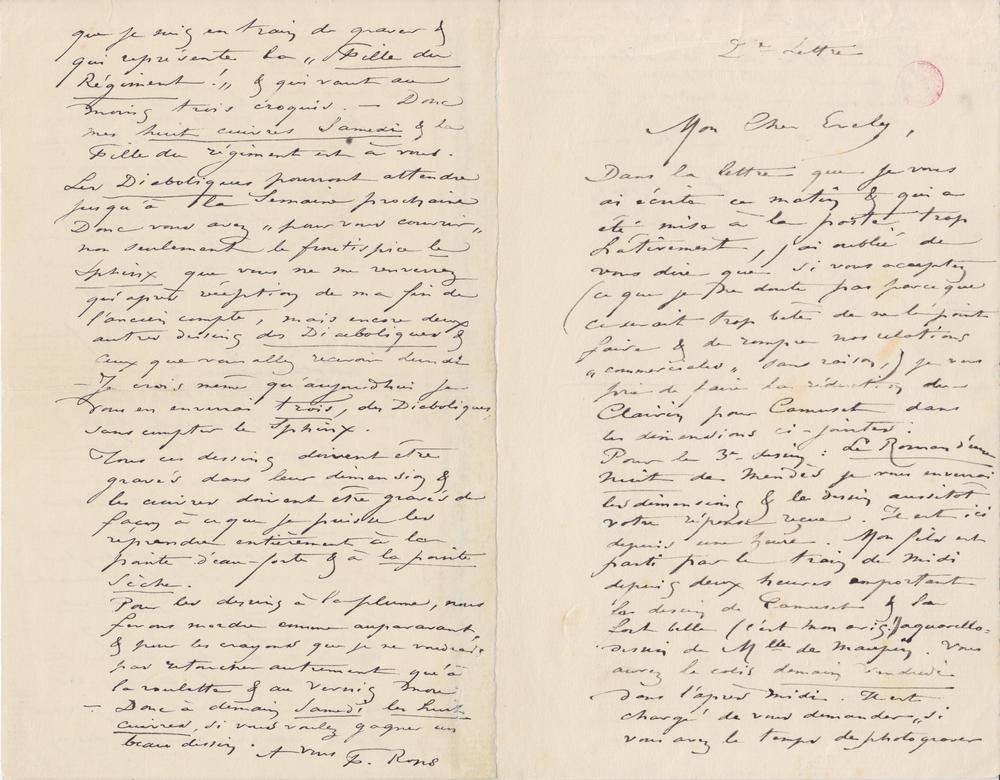 2e Lettre
Mon Cher Evely,
Dans la lettre que je vous
ai écrite ce matin & qui a
été mise à la poste trop
hâtivement, j'ai oublié de
vous dire que si vous acceptez
(ce que je ne doute pas parceque
ce serait trop bête de ne le point
faire & de rompre nos relations
"commerciales" sans raison,) je vous
prie de faire la réduction du
Clairin pour Camuset dans
les dimensions ci-jointes.
Pour le 3e dessin : Le Roman d'une
Nuit de Mendès je vous enverrai
les dimensions & le dessin aussitôt
votre réponse reçue. Il est ici
depuis une heure. Mon fils est
parti par le train de midi
depuis deux heures emportant
les dessin de Camuset & la
fort belle (c'est mon orig.!) aquarello-
dessin de Mlle de Maupin. Vous
aurez le colis demain vendredi
dans l'après midi. Il est
chargé de vous demander "si
vous avez le temps de photograver
que je suis en train de graver &
qui représente la „ Fille du
Régiment !„ & qui vaut au
moins trois croquis. — Donc
mes huit cuivres Samedi & la
Fille du régiment est à vous.
Les Diaboliques pourront attendre
jusqu'à la Semaine prochaine
Donc vous avez „ pour vous couvrir „
non seulement le frontispice le
Sphinx que vous ne me renverrez
qu'après réception de ma fin de
l'ancien compte, mais encore deux
autres dessins des Diaboliques &
ceux que vous allez recevoir
— Je crois même qu'aujourd'hui je
vous en enverrai trois, des Diaboliques
sans compter le Sphinx.
Tous ces dessins doivent être
gravés dans leur dimension &
les cuivres doivent être gravés de
façon à ce que je puisse les
reprendre entièrement à la
pointe d'eau-forte & à la pointe
sèche.
Pour les dessins à la plume, nous
ferons mordre comme auparavant,
& pour les crayons que je ne voudrais
pas retoucher autrement qu'à
la roulette & au vernis mou
— Donc à demain Samedi les huit
cuivres, si vous voulez gagner un
beau dessin.
A vous F. Rops